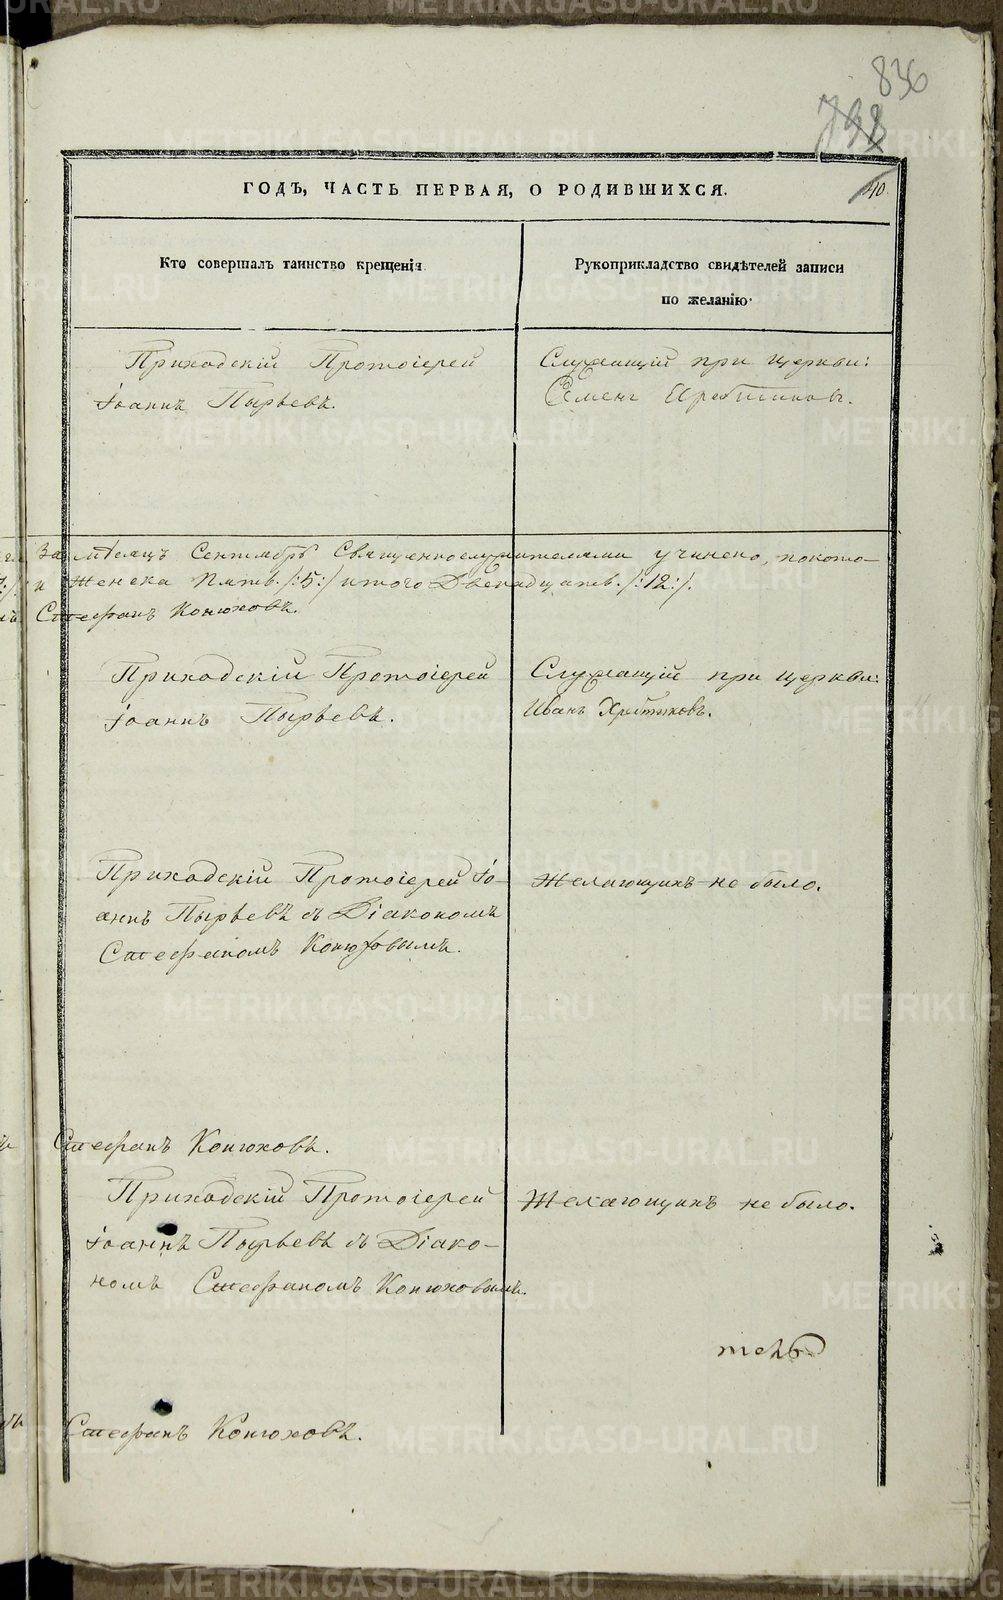 836
798
40.
ГОДЪ, ЧАСТЬ ПЕРВАЯ, О РОДИВШИХСЯ.
Кто совершалъ таинство крещенія
Рукоприкладство свидѣтелей записи
по желанію.
Приходскій Протоіерей
Іоаннъ Пырьевъ.
Служащій при церкви:
Семенъ
За мѣсяцъ Сентябрь Священнослужителями учинено, покото-
и Женска Пять. /:5:/ итого Двенадцать. /:12:/.
Стефанъ Конюховъ.
Приходскій Протоіерей
Іоаннъ Пырьевъ.
Служащій при церкви:
Иванъ
Приходскій Протоіерей Іо-
аннъ Пырьевъ съ Діакономъ
Стефаномъ Конюховымъ.
Желающихъ не было.
Стефанъ Конюховъ.
Приходскій Протоіерей
Іоаннъ Пырьевъ съ Діако-
номъ Стефаномъ Конюховымъ.
Желающихъ не было.
Стефанъ Конюховъ.
METRIKI.GASO-URAL.RU